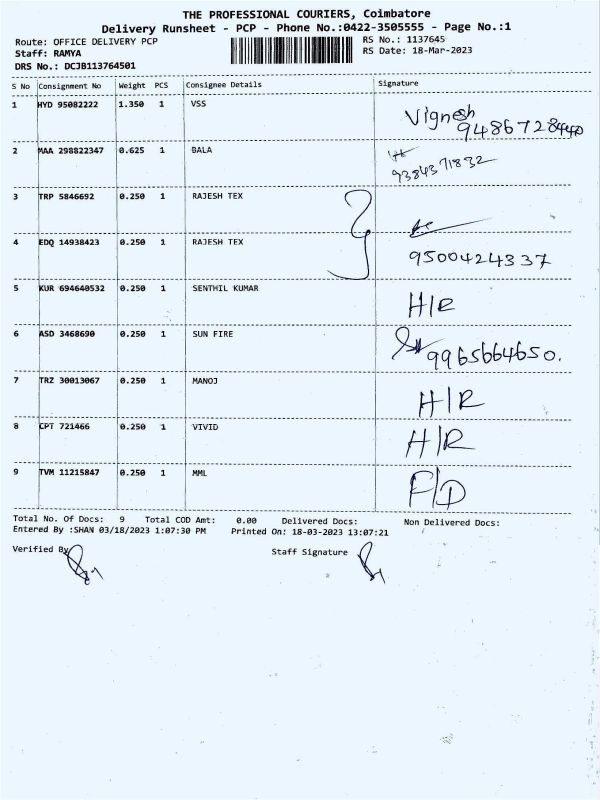 THE PROFESSIONAL COURIERS, Coimbatore
Delivery Runsheet - PCP - Phone No.:0422-3505555 - Page No.:1
Route: OFFICE DELIVERY PCP
Staff: RAMYA
DRS No.: DCJB113764501
RS No.: 1137645
RS Date: 18-Mar-2023
S No Consignment No Weight PCS Consignee Details Signature
1 HYD 95082222 1.350 1 VSS
Vignesh
2 MAA 298822347 0.625 1 BALA
9384371832
3 TRP 5846692 0.250 1 RAJESH TEX
4 EDQ 14938423 0.250 1 RAJESH TEX
9500424337
5 KUR 694640532 0.250 1 SENTHIL KUMAR
H/R
6 ASD 3468690 0.250 1 SUN FIRE
9965664650.
7 TRZ 30013067 0.250 1 MANOJ
H/R
8 CPT 721466 0.250 1 VIVID
H/R
9 TVM 11215847 0.250 1 MML
F/D
Total No. Of Docs: 9 Total COD Amt: 0.00 Delivered Docs: Non Delivered Docs:
Entered By :SHAN 03/18/2023 1:07:30 PM Printed On: 18-03-2023 13:07:21
Verified By
Staff Signature